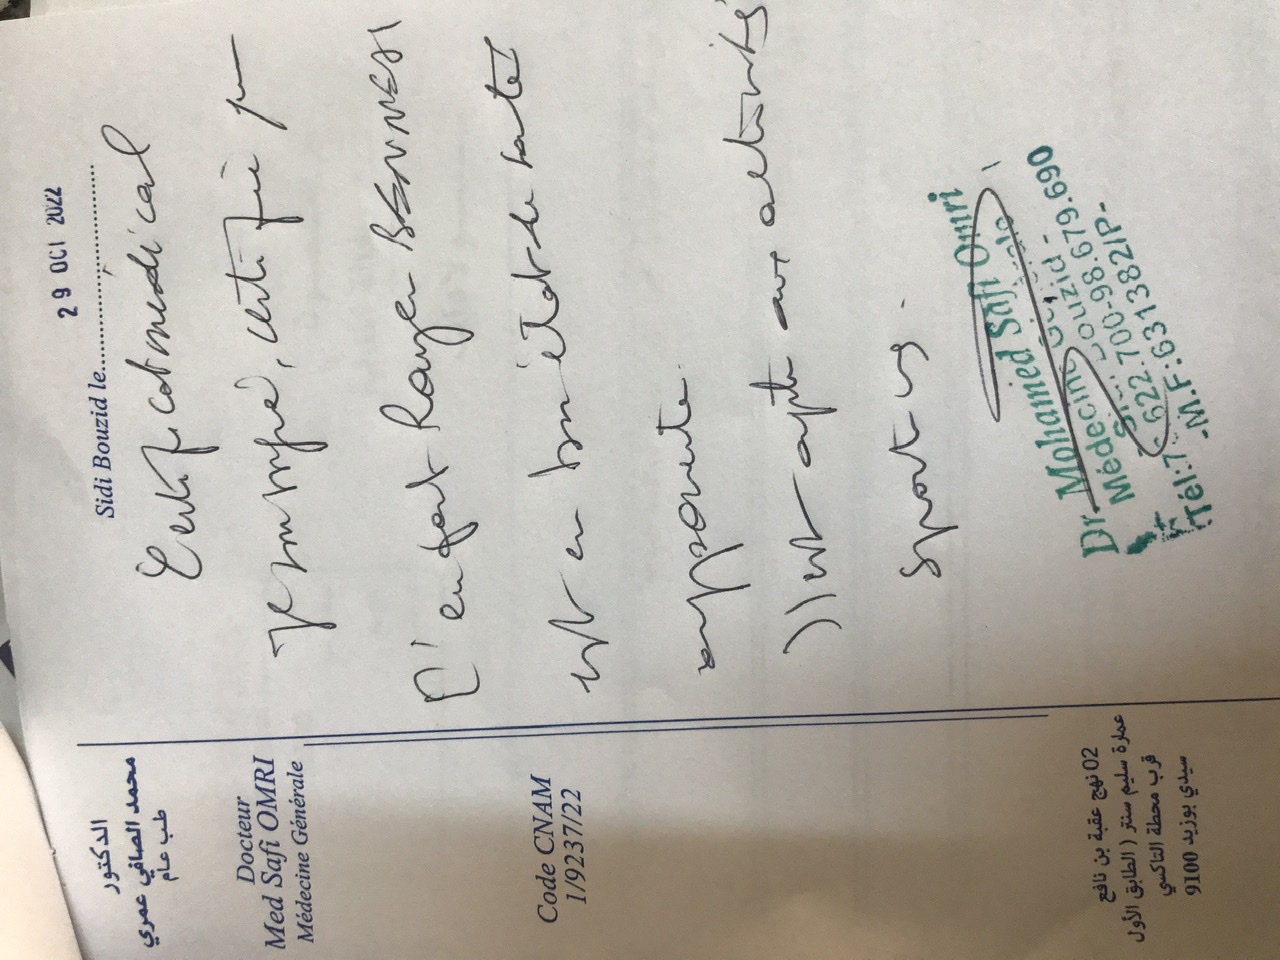 الدكتور
محمد الصافي عمري
طب عام
Docteur
Med Safi OMRI
Médecine Générale
Code CNAM
1/9237/22
02 نهج عقبة بن نافع
عمارة سليم سنتر ( الطابق الأول
قرب محطة التاكسي
سيدي بوزيد 9100
29 OCT 2022
Sidi Bouzid le
Certificat médical
Je soussigné, certifie que
l'enfant Rayen
est en bon état de santé
apparente.
Il est apte aux activités
sportives.
Dr. Mohamed Safi Omri
Médecine
Bouzid -
622.700-98.679.690
-M.F:631382/P-